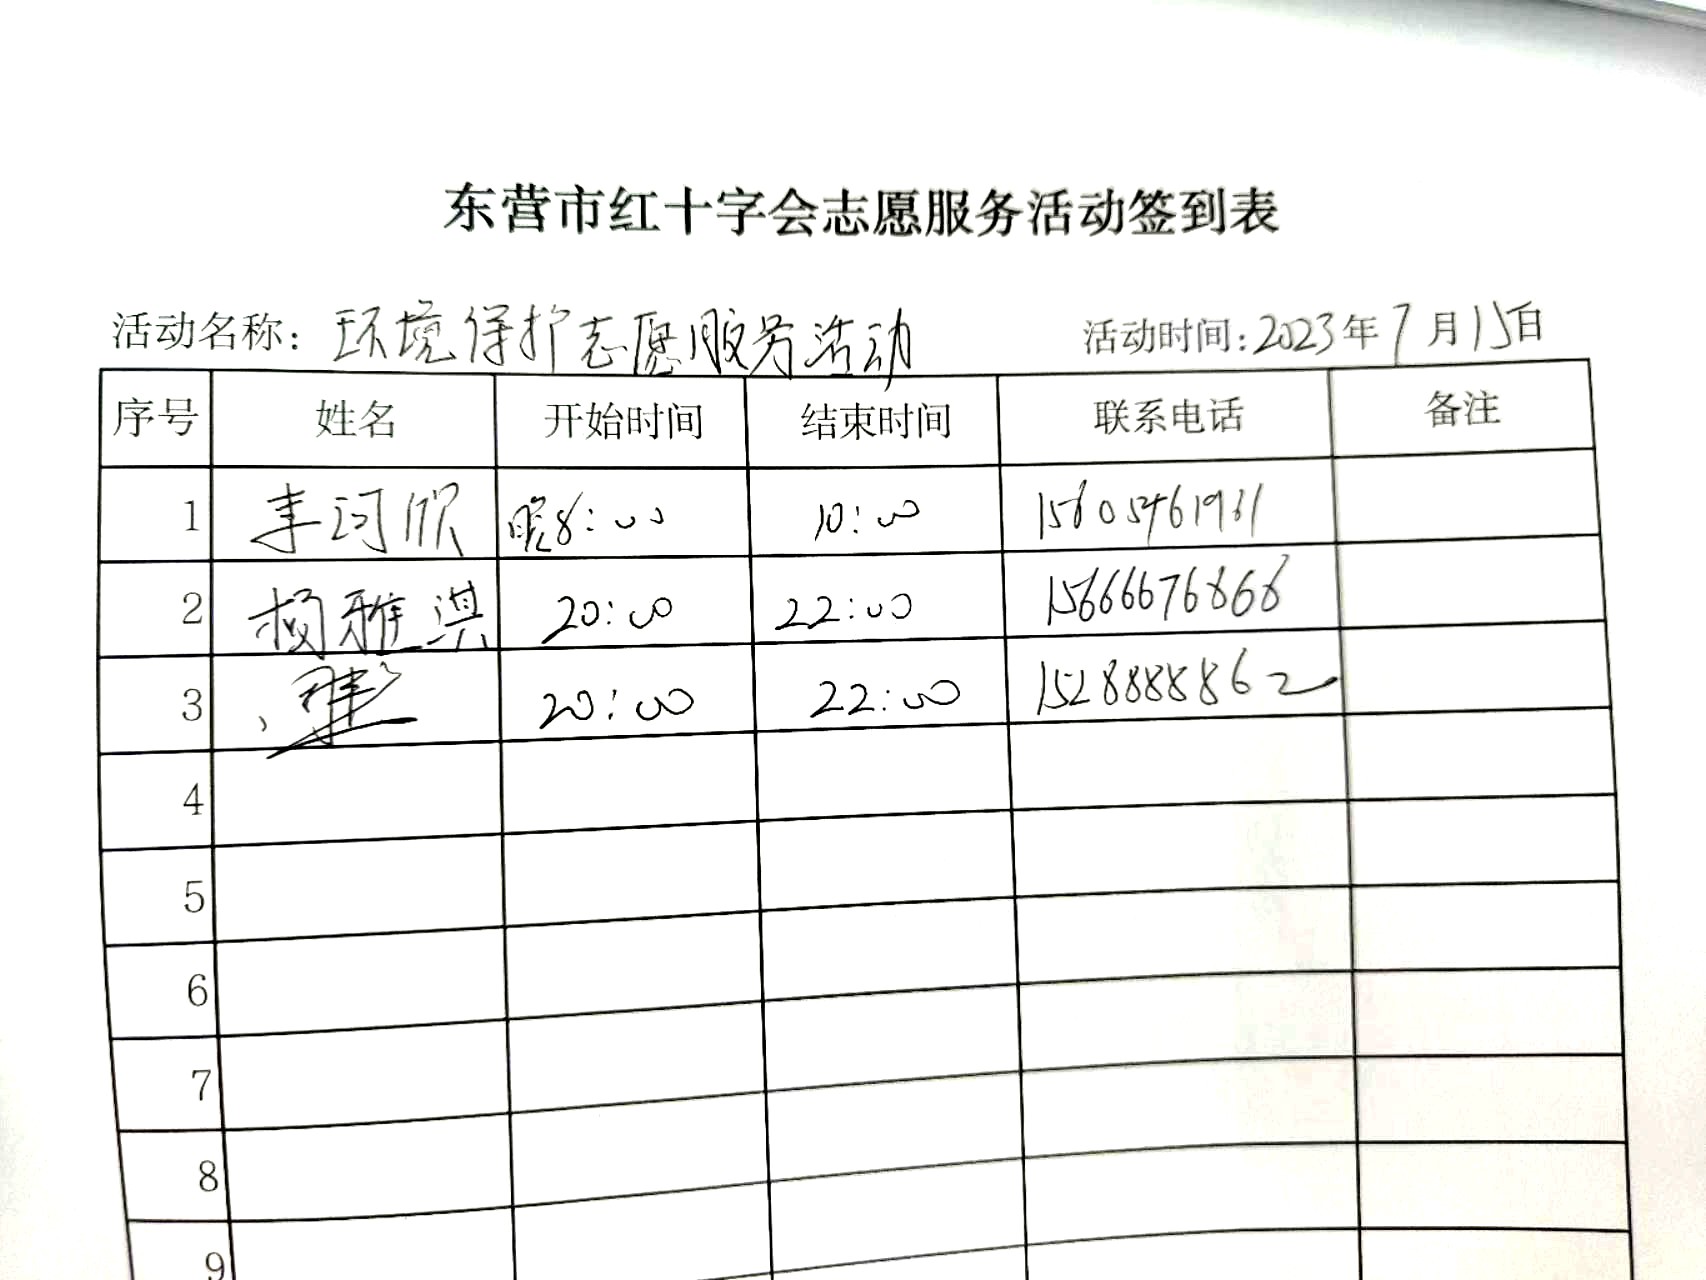 东营市红十字会志愿服务活动签到表
活动名称：环境保护志愿服务活动 活动时间：2023年7月15日
序号 姓名 开始时间 结束时间 联系电话 备注
1 李诃欣 晚8:00 10:00
2 杨雅淇 20:00 22:00 15666676868
3 20:00 22:00 15288888862
4
5
6
7
8
9